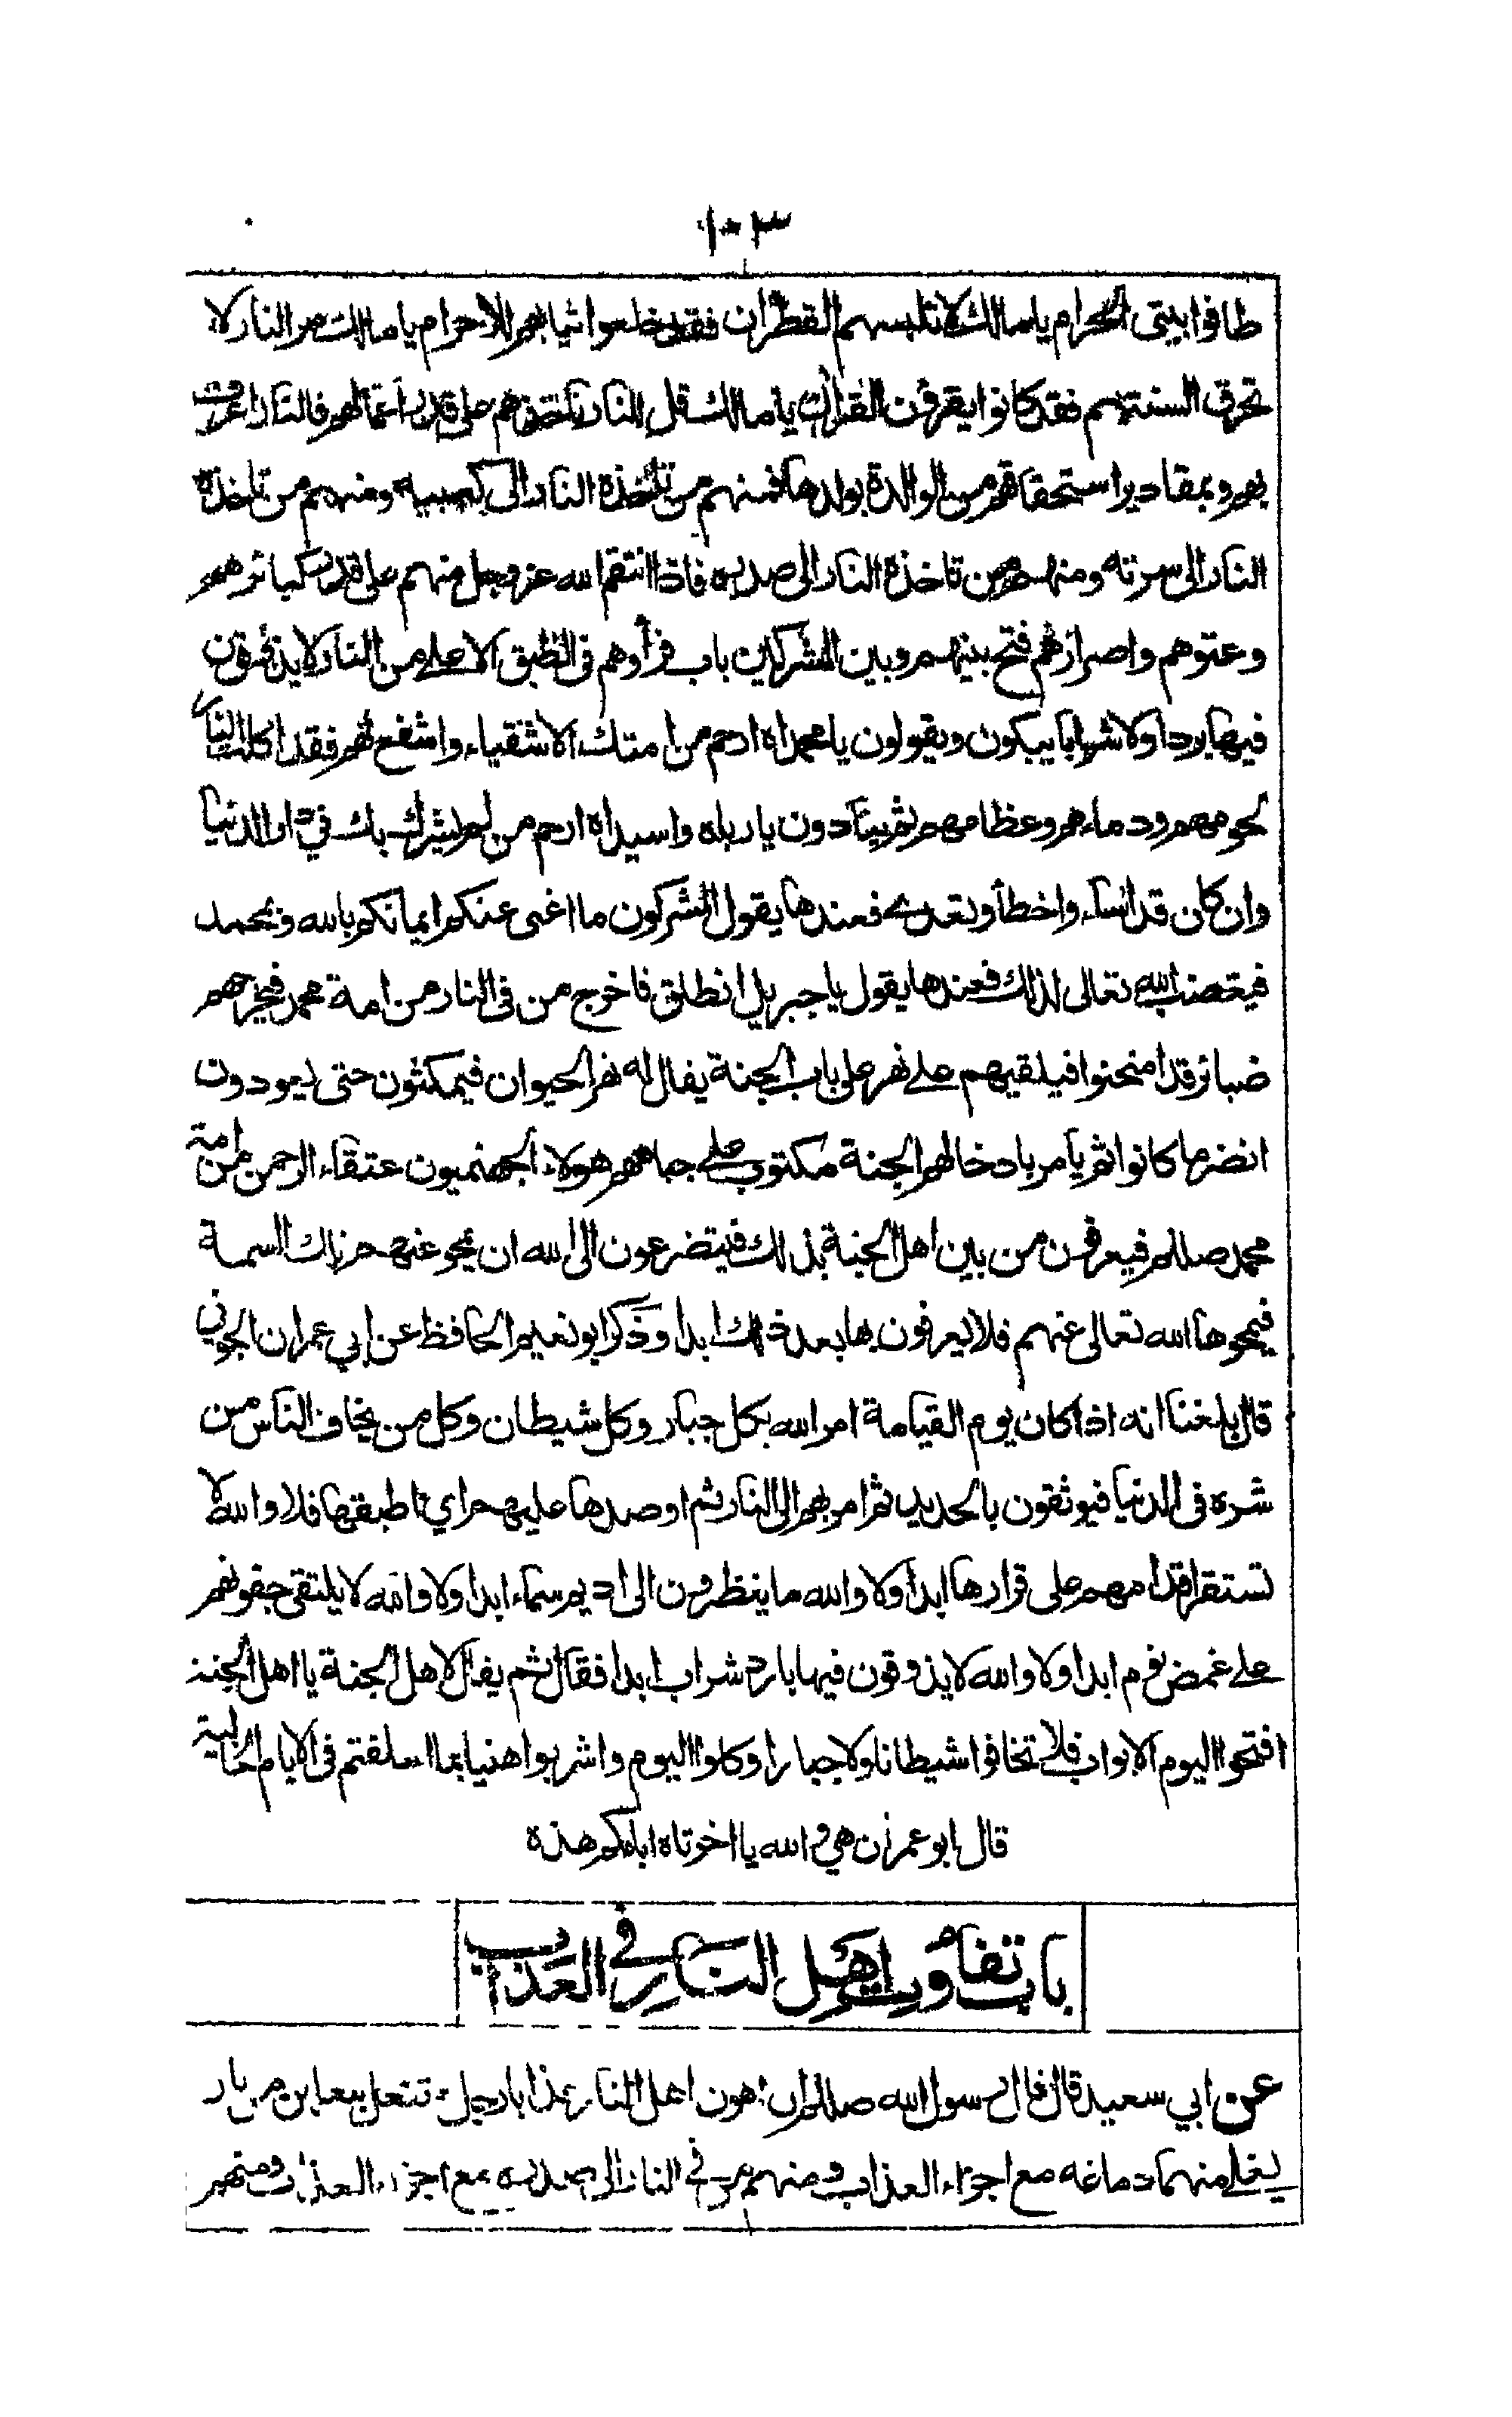 ١٠٣
طافوا بيتي الحرام يا مالك لا تلبسهم القطران فقد خلعوا ثيابهم للاحرام يا مالك مر النار لا
تحرق السنتهم فقد كانوا يقرؤن القران يا مالك قل للنار تاخذهم على قدر اعمالهم فالنار اعرف
بهم وبمقادير استحقاقهم من الوالدة بولدها فمنهم من تاخذه النار الى كعبيه ومنهم من تاخذه
النار الى سرته ومنهم من تاخذه النار الى صدره فاذا انتقم الله عز وجل منهم على قدر كبائرهم
وعتوهم واصرارهم فتح بينهم وبين المشركين باب فرأوهم في الطبق الاعلے من النار لا يذوقون
فيها بردا ولا شرابا يبكون ويقولون يا محمداه ارحم من امتك الاشقياء واشفع لهم فقد اكلت النار
لحومهم ودماءهم وعظامهم ثم ينادون يا رباه واسيداه ارحم من لم يشرك بك في دار الدنيا
وان كان قد اساء واخطأ وتعدى فعندها يقول المشركون ما اغنى عنكم ايمانكم بالله وبمحمد
فيغضب الله تعالى لذلك فعندها يقول يا جبريل انطلق فاخرج من في النار من امة محمد فيخرجهم
ضبائر قد امتحنوا فيلقيهم علے نهر على باب الجنة يقال له نهر الحيوان فيمكثون حتى يعودون
انضر ما كانوا ثم يأمر بادخالهم الجنة مكتوب علے جباههم هولاء الجهنميون عتقاء الرحمن من امة
محمد صللم فيعرفون من بين اهل الجنة بذلك فيتضرعون الى الله ان يمحو عنهم تلك السمة
فيمحوها الله تعالى عنهم فلا يعرفون بها بعد ذلك ابدا وذكر ابو نعيم الحافظ عن ابي عمران الجوني
قال بلغنا انه اذا كان يوم القيامة امر الله بكل جبار وكل شيطان وكل من يخاف الناس من
شره في الدنيا فيوثقون بالحديد ثم امر بهم الى النار ثم اوصدها عليهم اي اطبقها فلا والله لا
تستقر اقدامهم على قرارها ابدا ولا والله ما ينظرون الى اديم سماء ابدا ولا والله لا يلتقي جفونهم
علے غمض نوم ابدا ولا والله لا يذوقون فيها بارد شراب ابدا فقال ثم يقال لاهل الجنة يا اهل الجنة
افتحوا اليوم الابواب فلا تخافوا شيطانا ولا جبارا وكلوا اليوم واشربوا هنيا بما اسلفتم في الايام الخالية
قال ابو عمران هي والله يا اخوتاه ايامكم هذه
باب تفاوت اهل النار في العذاب
عن ابي سعيد قال قال رسول الله صللم ان اهون اهل النار عذابا رجل تنعل بنعلين من نار
يغلے منهما دماغه مع اجزاء العذاب ومنهم من في النار الى صدره مع اجزاء العذاب ومنهم